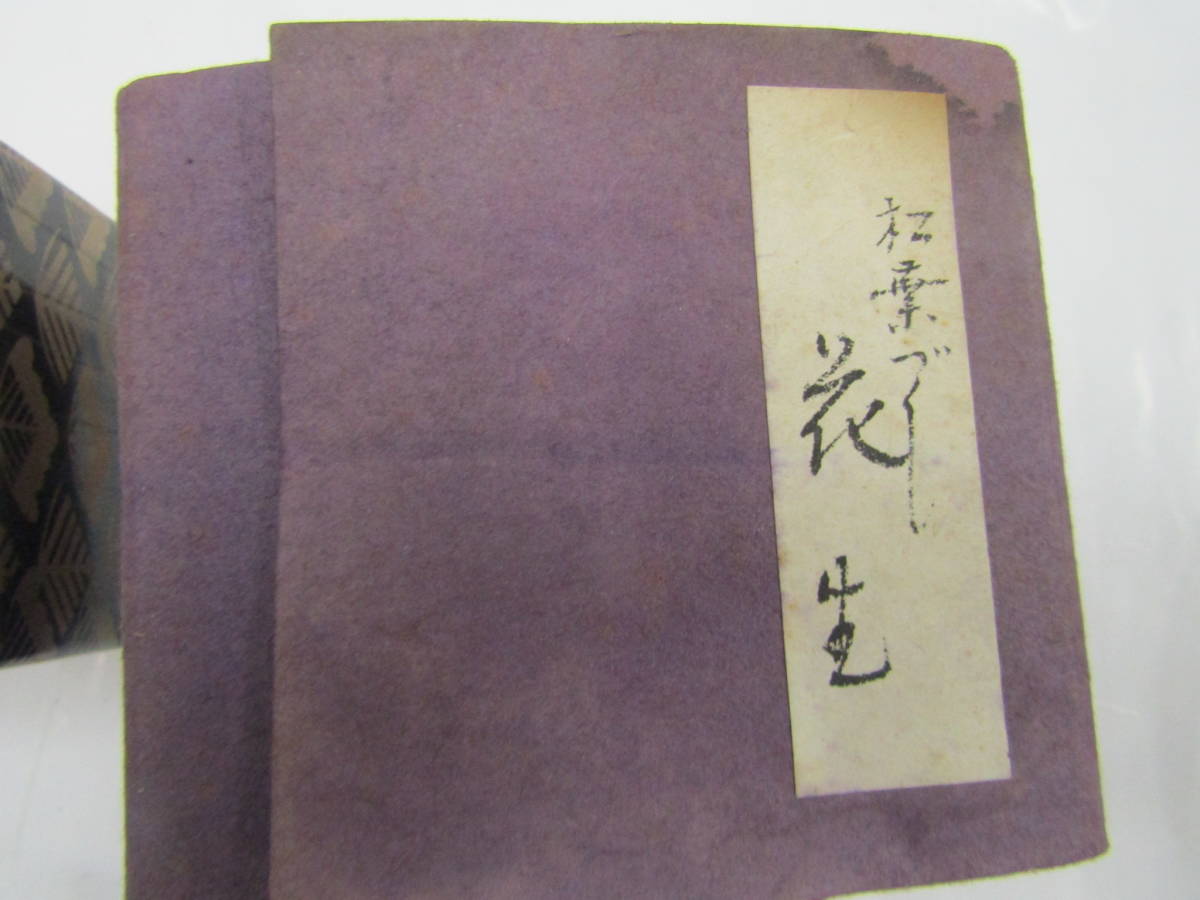 松葉づくし
花生